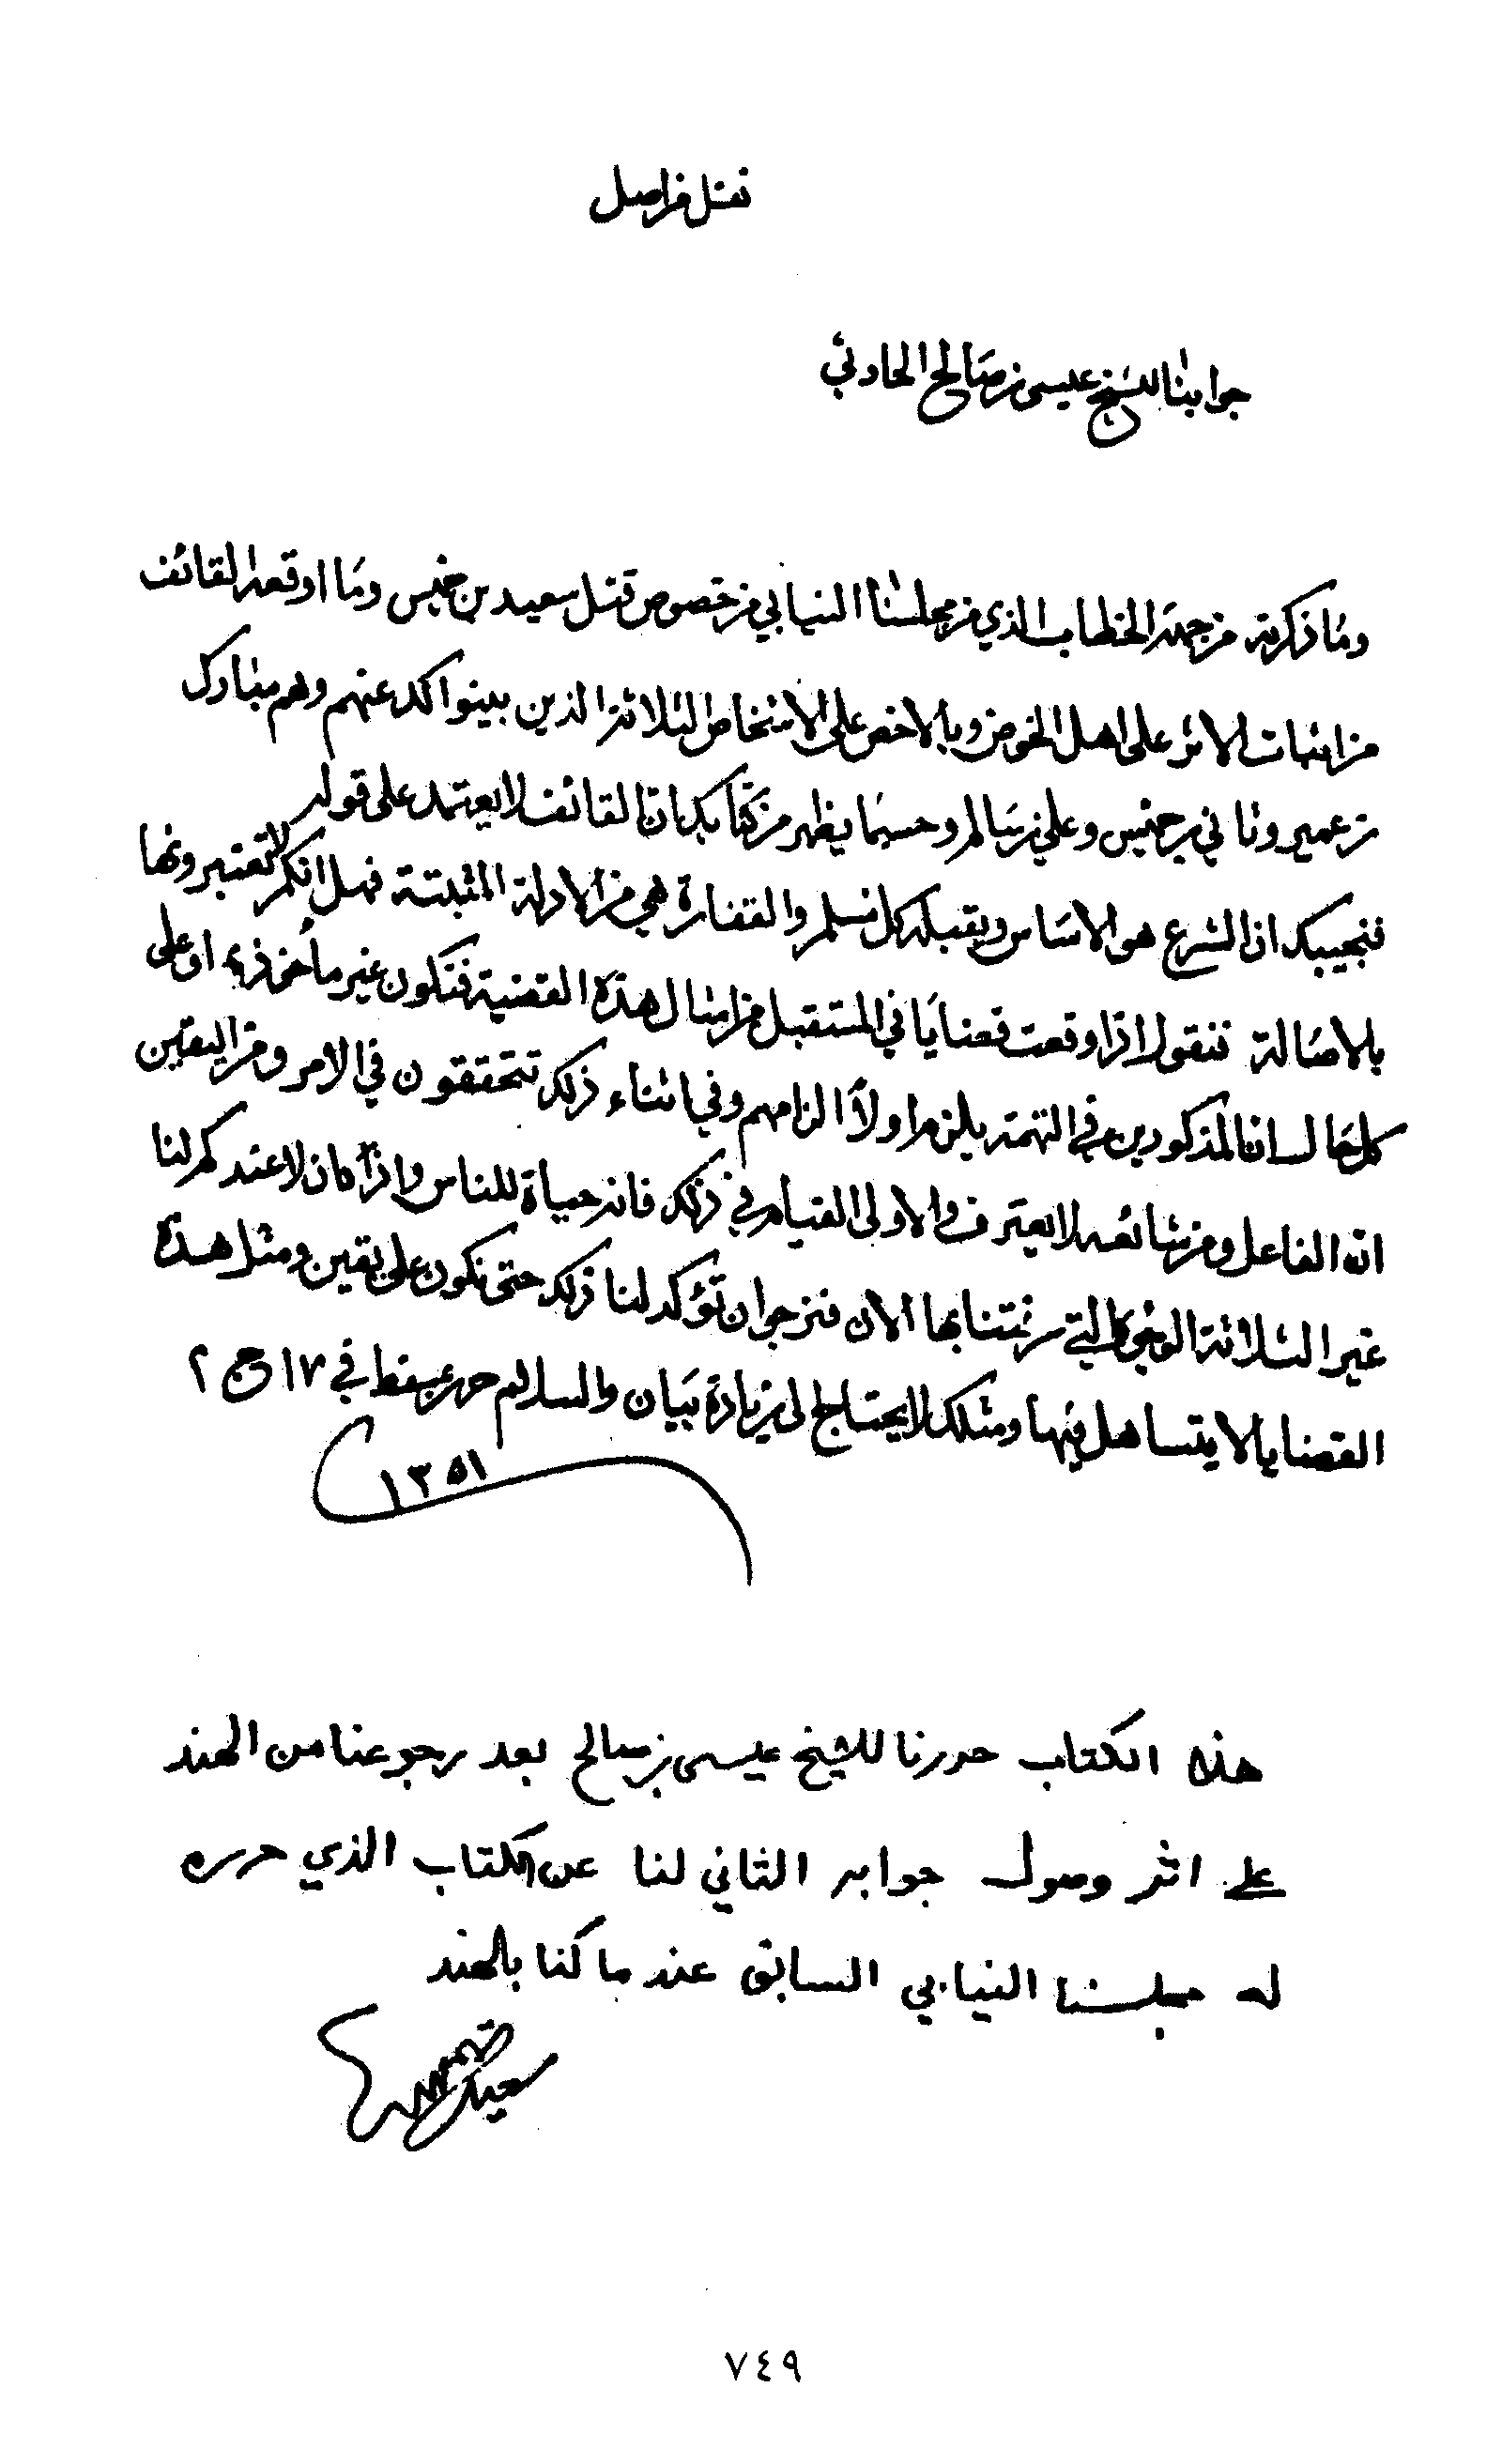 نقل من اصل
جوابنا للشيخ عيسى بن صالح الحارثي
وما ذكرته من جهة الخطاب الذي من مجلسنا النيابي من خصوص قتل سعيد بن خميس وما اوقعه القائف
من اثبات الاثر على اهل الخوض وبالاخص على الاشخاص الثلاثة الذين بينوا لك عنهم وهم مبارك
بن عمير وثاني بن خميس وعلي بن سالم وحسبما يظهر من كتابك ان القائف لا يعتمد على قوله
فنجيبك ان الشرع هو الاساس ويقبله كل مسلم والقفارة هي من الادلة المثبتة فهل انكم لا تعتبرونها
بالاصالة فنقول اذا وقعت قضايا في المستقبل من امثال هذه القضية فتكون غير مأخوذة او على
كل حال ان المذكورين في التهمة يلزم اولاً الزامهم وفي اثناء ذلك تتحققون في الامر ومن اليقين
ان الفاعل ومن شائعه لا يعترف والاولى القيام في ذلك فانه حياة للناس واذا كان لا عندكم لنا
غير الثلاثة الوجوه التي رغمتنا بها الان فنرجو ان تؤكد لنا ذلك حتى نكون على يقين ومثل هذه
القضايا لا يتساهل فيها ومثلك لا يحتاج الى زيادة بيان والسلام حرر بمسقط في ١٧ ج ٢
١٣٥١
هذا الكتاب حررنا للشيخ عيسى بن صالح بعد رجوعنا من الهند
على اثر وصول جوابه الثاني لنا عن الكتاب الذي حرره
له مجلسنا النيابي السابق عند ما كنا بالهند
سعيد بن تيمور
٧٤٩